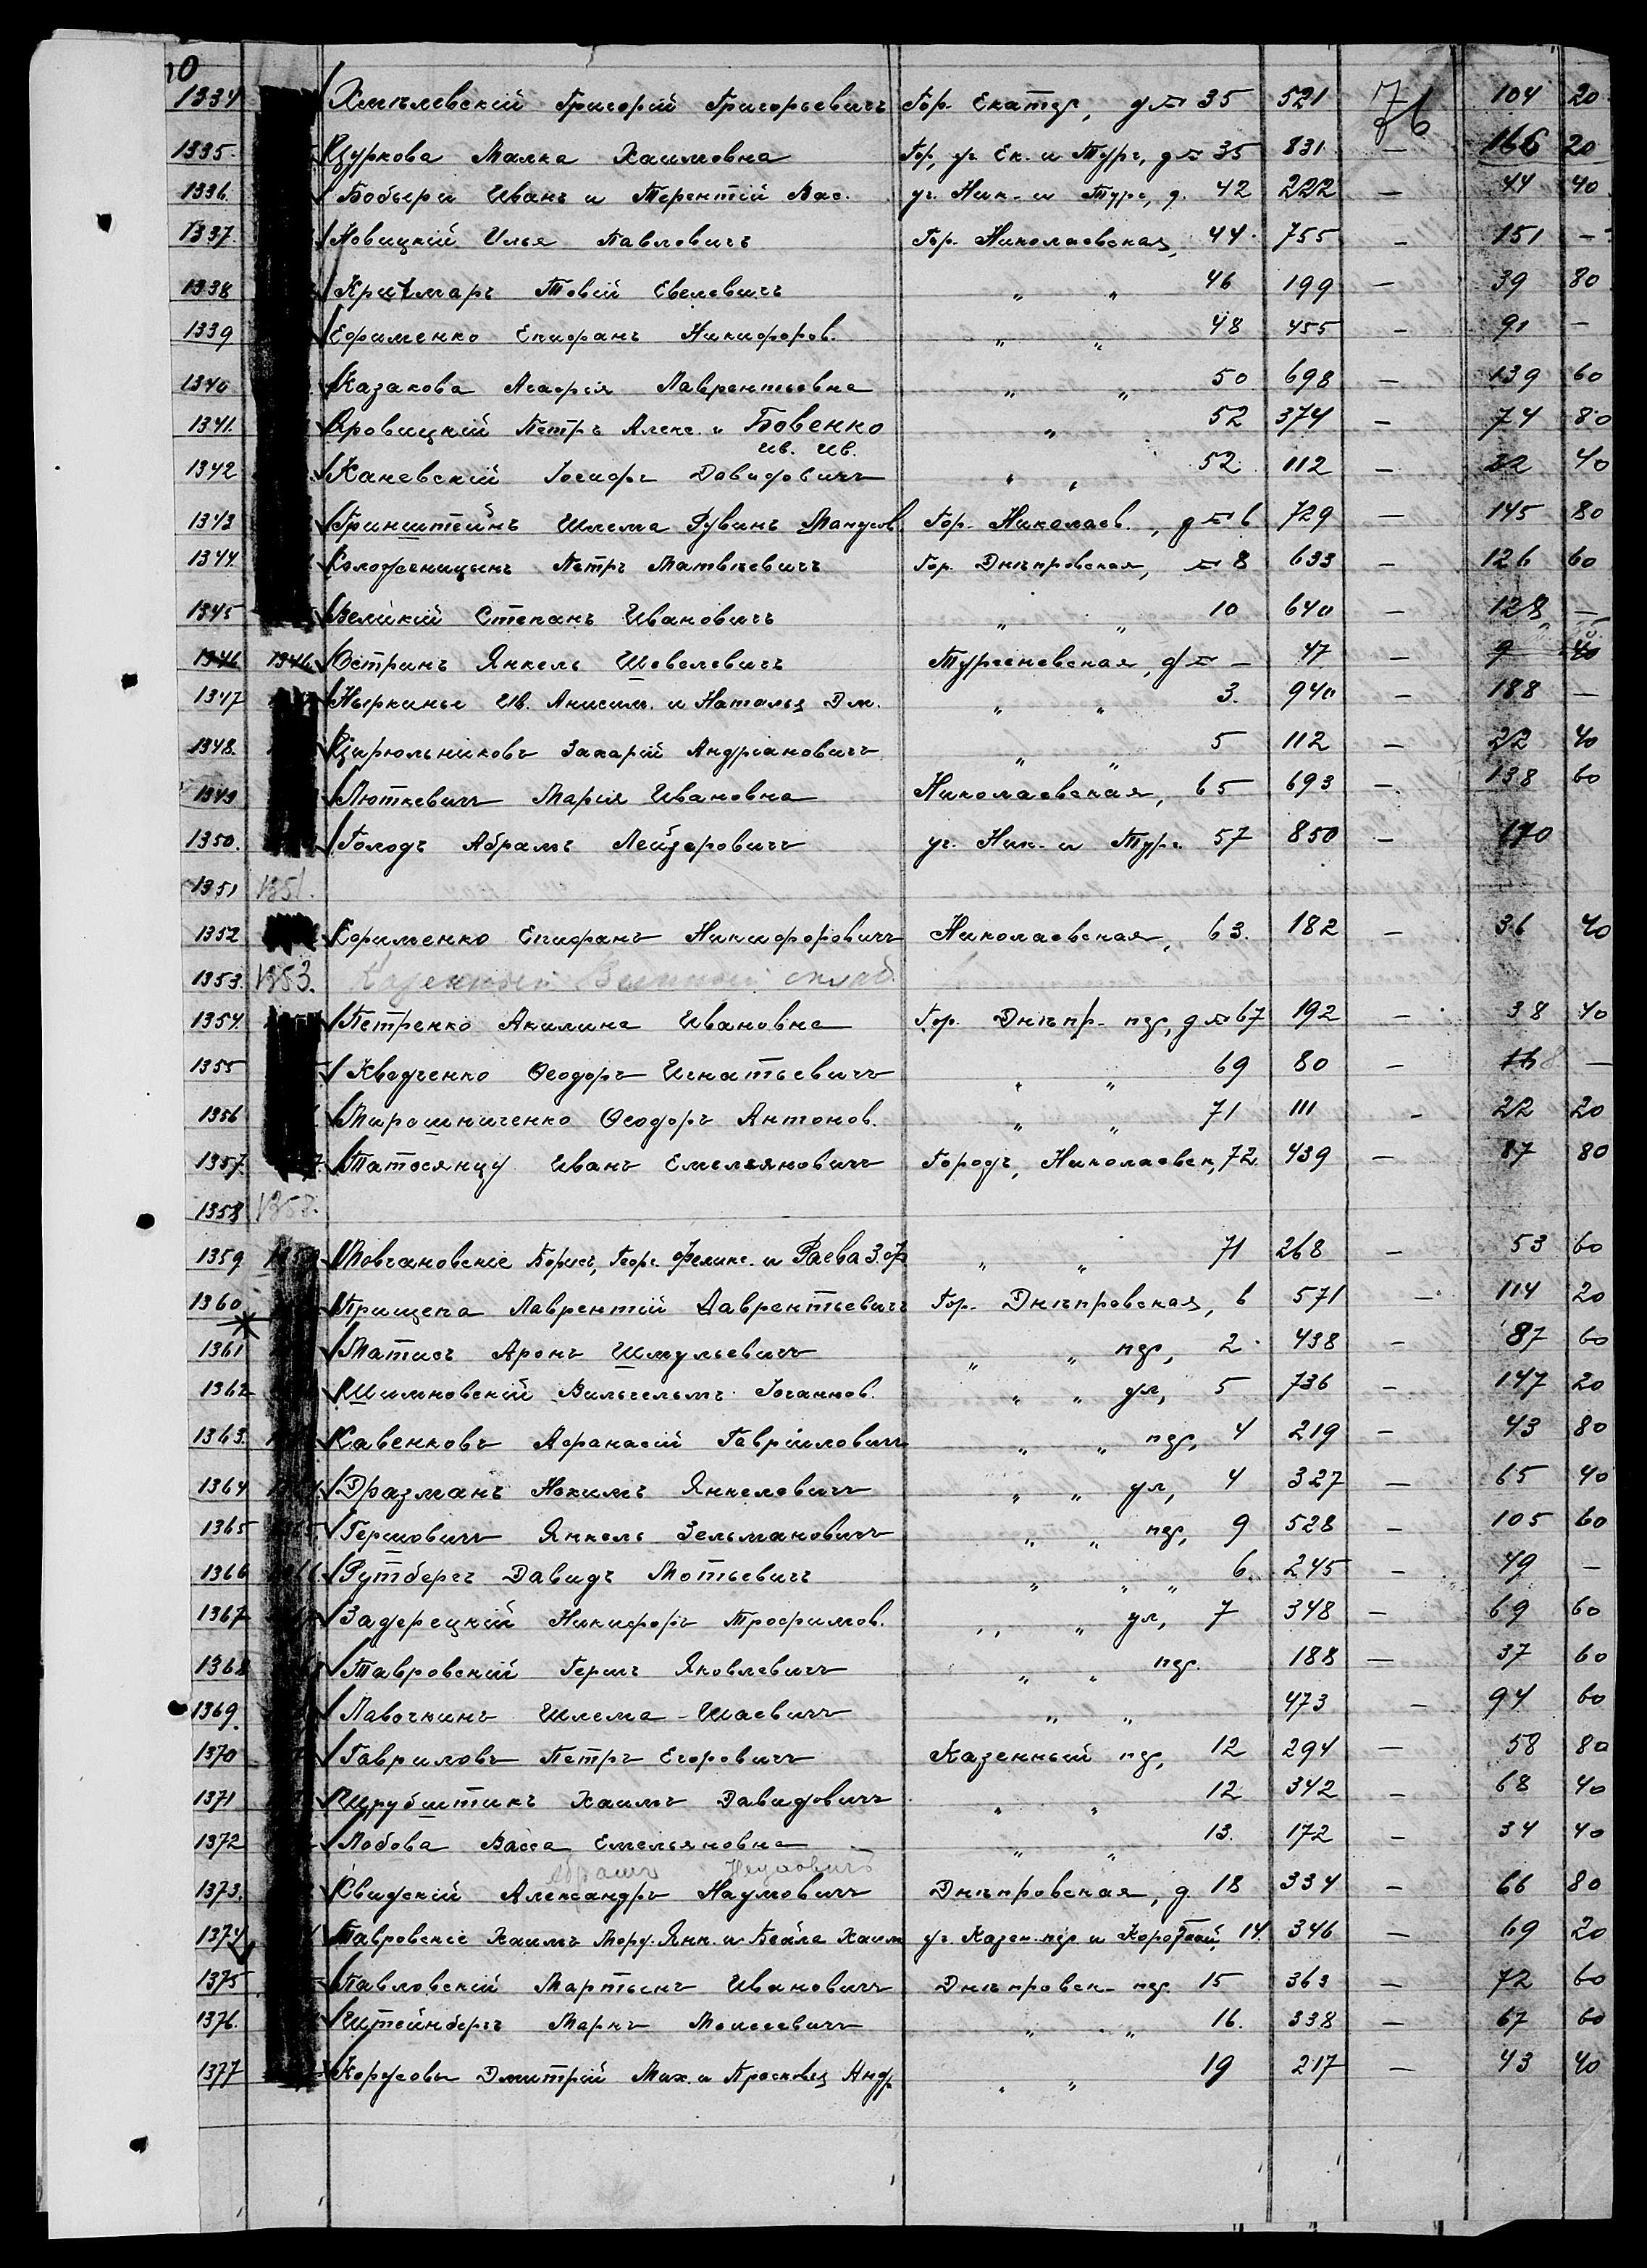 10
76
1334 Хмѣлевскій Григорій Григорьевичъ Гор. Екатер, д № 35 521 104 20
1335. Цуркова Малка Хаимовна Гор, уг. Ек. и Тург, д № 35 831 — 166 20
1336. Бобыри Иванъ и Терентій Вас. уг. Ник. и Тург, д. 42 222 — 44 40
1337. Новицкій Илья Павловичъ Гор. Николаевская, 44 755 — 151 —
1338 Кричмаръ Товій Евелевичъ " " 46 199 — 39 80
1339 Ефименко Епифанъ Никифоров. " " 48 455 — 91 —
1340 Казакова Агафія Лаврентьевна " " 50 698 — 139 60
1341. Яровицкій Петръ Алекс. и Бовенко " 52 374 — 74 80
ив. ив.
1342 Каневскій Іосифъ Давидовичъ " " 52 112 — 22 40
1343 Гринштейнъ Шлема Рувинъ Манусов. Гор. Николаев., д № 6 729 — 145 80
1344. Колодочницынъ Петръ Матвѣевичъ Гор. Днѣпровская, № 8 633 — 126 60
1345 Великій Степанъ Ивановичъ " " 10 640 — 128 —
1346 1346 Остринъ Янкель Шевелевичъ Тургеневская, д № — 47 — 9 40
1347 Ныркины Ив. Анисим. и Наталья Дм. " " 3. 940 — 188 —
1348. Цирюльниковъ Захарій Андріановичъ " " 5 112 — 22 40
1349 Люткевичъ Марія Ивановна Николаевская, 65 693 — 138 60
1350. Голодъ Абрамъ Лейзеровичъ уг. Ник. и Тург. 57 850 — 170
1351 1351.
1352 Ефименко Епифанъ Никифоровичъ Николаевская, 63. 182 — 36 40
1353. 1353. Казенный Винный складъ
1354. Петренко Акилина Ивановна Гор. Днѣпр. пер, д № 67 192 — 38 40
1355 Квадченко Ѳеодоръ Игнатьевичъ " " 69 80 — 16 —
1356 Мирошниченко Ѳеодоръ Антонов. " " 71 111 — 22 20
1357. Татосянцу Иванъ Емельяновичъ Городъ, Николаевск, 72 439 — 87 80
1358 1358.
1359 Мовчановскіе Борисъ, Геор. Феликс. и Раева З. Ф " " 71 268 — 53 60
1360 Прищепа Лаврентій Лаврентьевичъ Гор. Днѣпровская, 6 571 — 114 20
1361 Матисъ Аронъ Шмульевичъ " " пер, 2 438 — 87 60
1362 Шимновскій Вильгельмъ Іоганнов. " " ул, 5 736 — 147 20
1363. Савенковъ Афанасій Гавріиловичъ " " пер, 4 219 — 43 80
1364 Дразманъ Нохимъ Янкелевичъ " " ул, 4 327 — 65 40
1365 Гершовичъ Янкель Зельмановичъ " " пер, 9 528 — 105 60
1366 Рутбергъ Давидъ Мотьевичъ " " " 6. 245 — 49 —
1367 Задерецкій Никифоръ Трофимов. " " ул, 7 348 — 69 60
1368 Тавровскій Гершъ Яковлевичъ " " пер. 188 — 37 60
1369. Лавочкинъ Шлема-Шаевичъ " " 473 — 94 60
1370 Гавриловъ Петръ Егоровичъ Казенный пер, 12 294 — 58 80
1371 Шрубштикъ Хаимъ Давидовичъ " " 12 342 — 68 40
1372 Лобова Васса Емельяновна " " 13. 172 — 34 40
Абрамъ
1373. Свидскій Александръ Наумовичъ Днѣпровская, д. 18 334 — 66 80
1374 Тавровскіе Хаимъ Морд. Янк. и Бейла Хаим уг. Казен. пер. и Короткой, 14. 346 — 69 20
1375 Павловскій Мартынъ Ивановичъ Днѣпровск. пер. 15 363 — 72 60
1376. Штейнбергъ Маркъ Моисеевичъ " " 16. 338 — 67 60
1377 Корусовы Дмитрій Мих. и Прасковья Анд. " " 19 217 — 43 40